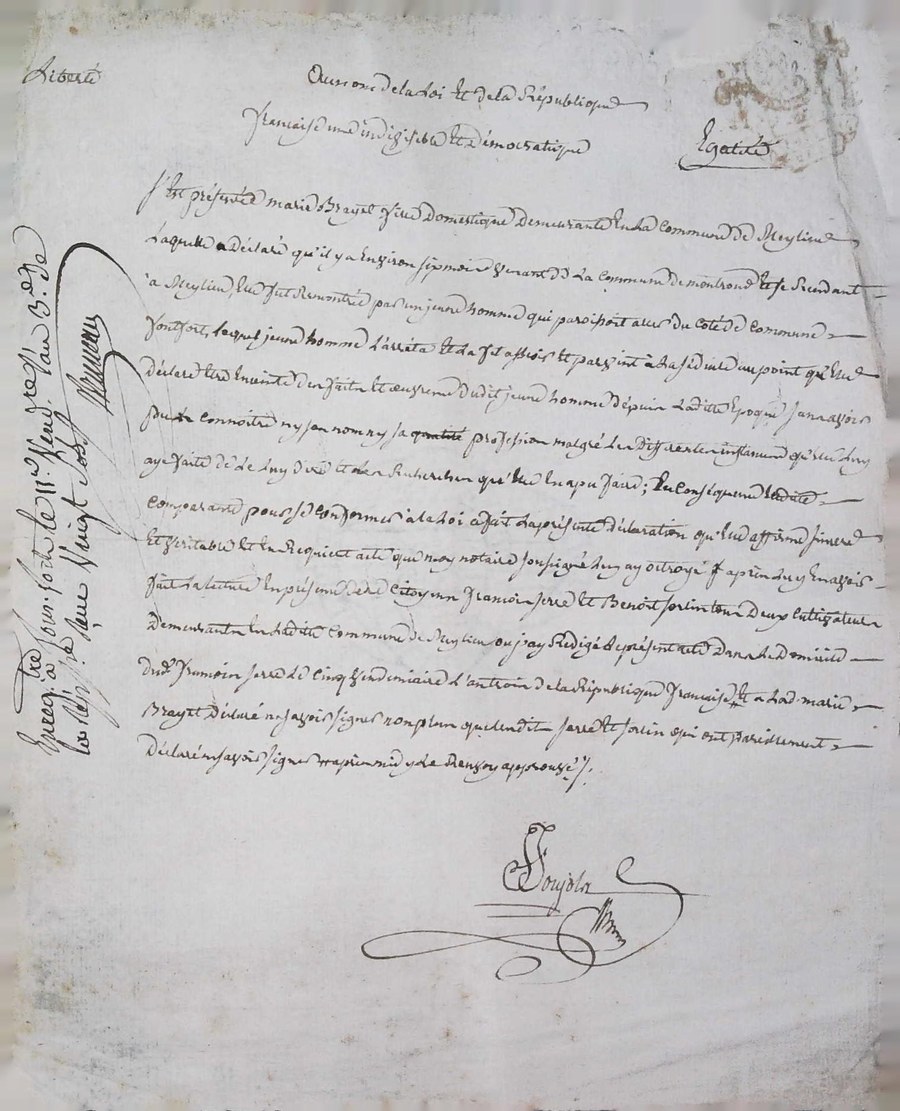 Liberté
Au nom de la Loi Et de la République
française une indivisible Et démocratique
Egalité
S'Est présentée marie Brayet fille Domestique Demeurante En La Commune de Meylieu
Laquelle a déclaré qu'il y a Environ six mois Venant de La Commune de montrond Et se Rendant
à Meylieu, Elle fut Rencontrée par un jeune homme qui paroissoit aller du Coté de Commune
fontfort, Lequel jeune homme L'arréta Et La fit assoir Et parvint à La séduire au point qu'Elle
déclare Etre Enceinte des faits Et œuvres dudit jeune homme depuis Laditte Epoque, sans avoir
pu connoitre ny son nom ny sa qualité profession malgré Les differentes instances qu'elle Luy
aye faite de Le Luy dire Et Les Recherches qu'Elle En a pu faire; En Conséquence Ladite
comparante pour se Conformer à la Loi a fait La présente Déclaration qu'Elle affirme sincere
Et Veritable Et En Requiert acte que moy notaire soussigné Luy ay octroyé Et après Luy En avoir
fait La Lecture En présence de Citoyens François serre Et Benoit fortin tous Deux Cultivateurs
Demeurants En Ladite Commune de Meylieu ou j'ay Rédigé Le présent acte Dans Le domicile
dud. François serre Le Cinq Vendemiaire L'an trois de la République française Et a Lad. marie
Brayet Déclaré ne savoir signer non plus que Lesdits serre Et fortin qui ont pareillement
Déclaré ne savoir signer après midy Le Renvoy approuvé ./.
Enregtré à Lour. forte le 11e Vend. l'an 3e de
la Rép. Reçu Vingt sols